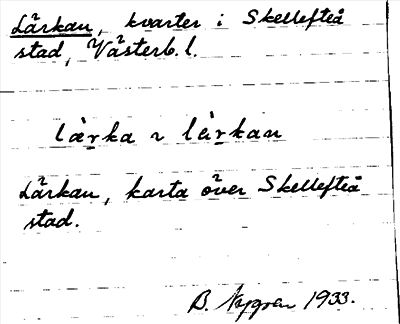 Lärkan, kvarter i Skellefteå
stad, Västerb. l.
lärka ~ lärkan
Lärkan, karta över Skellefteå
stad.
B. Nygren 1933.